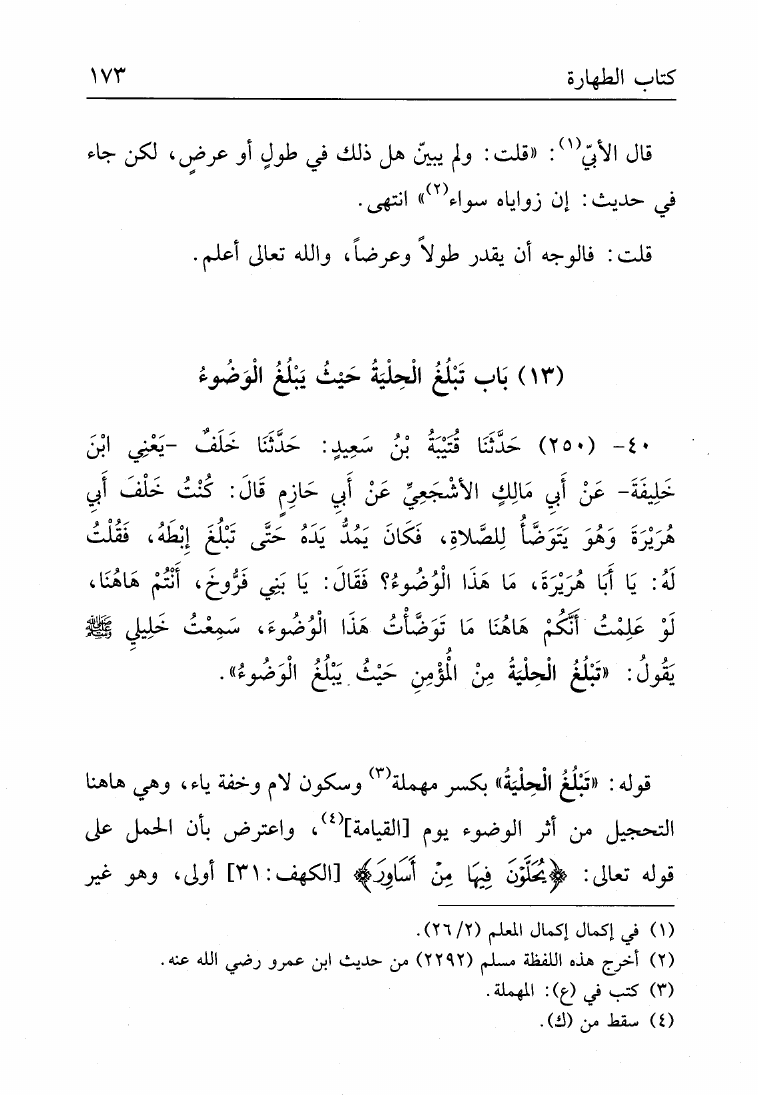 كتاب الطهارة ١٧٣
قال الأبيّ(١): «قلت: ولم يبينّ هل ذلك في طولٍ أو عرضٍ، لكن جاء
في حديث: إن زواياه سواء(٢)» انتهى.
قلت: فالوجه أن يقدر طولاً وعرضاً، والله تعالى أعلم.
(١٣) بَاب تَبْلُغُ الْحِلْيَةُ حَيْثُ يَبْلُغُ الْوَضُوءُ
٤٠- (٢٥٠) حَدَّثَنَا قُتَيْبَةُ بْنُ سَعِيدٍ: حَدَّثَنَا خَلَفٌ -يَعْنِي ابْنَ
خَلِيفَةَ- عَنْ أَبِي مَالِكٍ الأشْجَعِيِّ عَنْ أَبِي حَازِمٍ قَالَ: كُنْتُ خَلْفَ أَبِي
هُرَيْرَةَ وَهُوَ يَتَوَضَّأُ لِلصَّلاةِ، فَكَانَ يَمُدُّ يَدَهُ حَتَّى تَبْلُغَ إِبْطَهُ، فَقُلْتُ
لَهُ: يَا أَبَا هُرَيْرَةَ، مَا هَذَا الْوُضُوءُ؟ فَقَالَ: يَا بَنِي فَرُّوخَ، أَنْتُمْ هَاهُنَا،
لَوْ عَلِمْتُ أَنَّكُمْ هَاهُنَا مَا تَوَضَّأْتُ هَذَا الْوُضُوءَ، سَمِعْتُ خَلِيلِي ﷺ
يَقُولُ: «تَبْلُغُ الْحِلْيَةُ مِنْ الْمُؤْمِنِ حَيْثُ يَبْلُغُ الْوَضُوءُ».
قوله: «تَبْلُغُ الْحِلْيَةُ» بكسر مهملة(٣) وسكون لام وخفة ياء، وهي هاهنا
التحجيل من أثر الوضوء يوم [القيامة](٤)، واعترض بأن الحمل على
قوله تعالى: ﴿يُحَلَّوْنَ فِيهَا مِنْ أَسَاوِرَ﴾ [الكهف:٣١] أولى، وهو غير
(١) في إكمال إكمال المعلم (٢٦/٢).
(٢) أخرج هذه اللفظة مسلم (٢٢٩٢) من حديث ابن عمرو رضي الله عنه.
(٣) كتب في (ع): المهملة.
(٤) سقط من (ك).